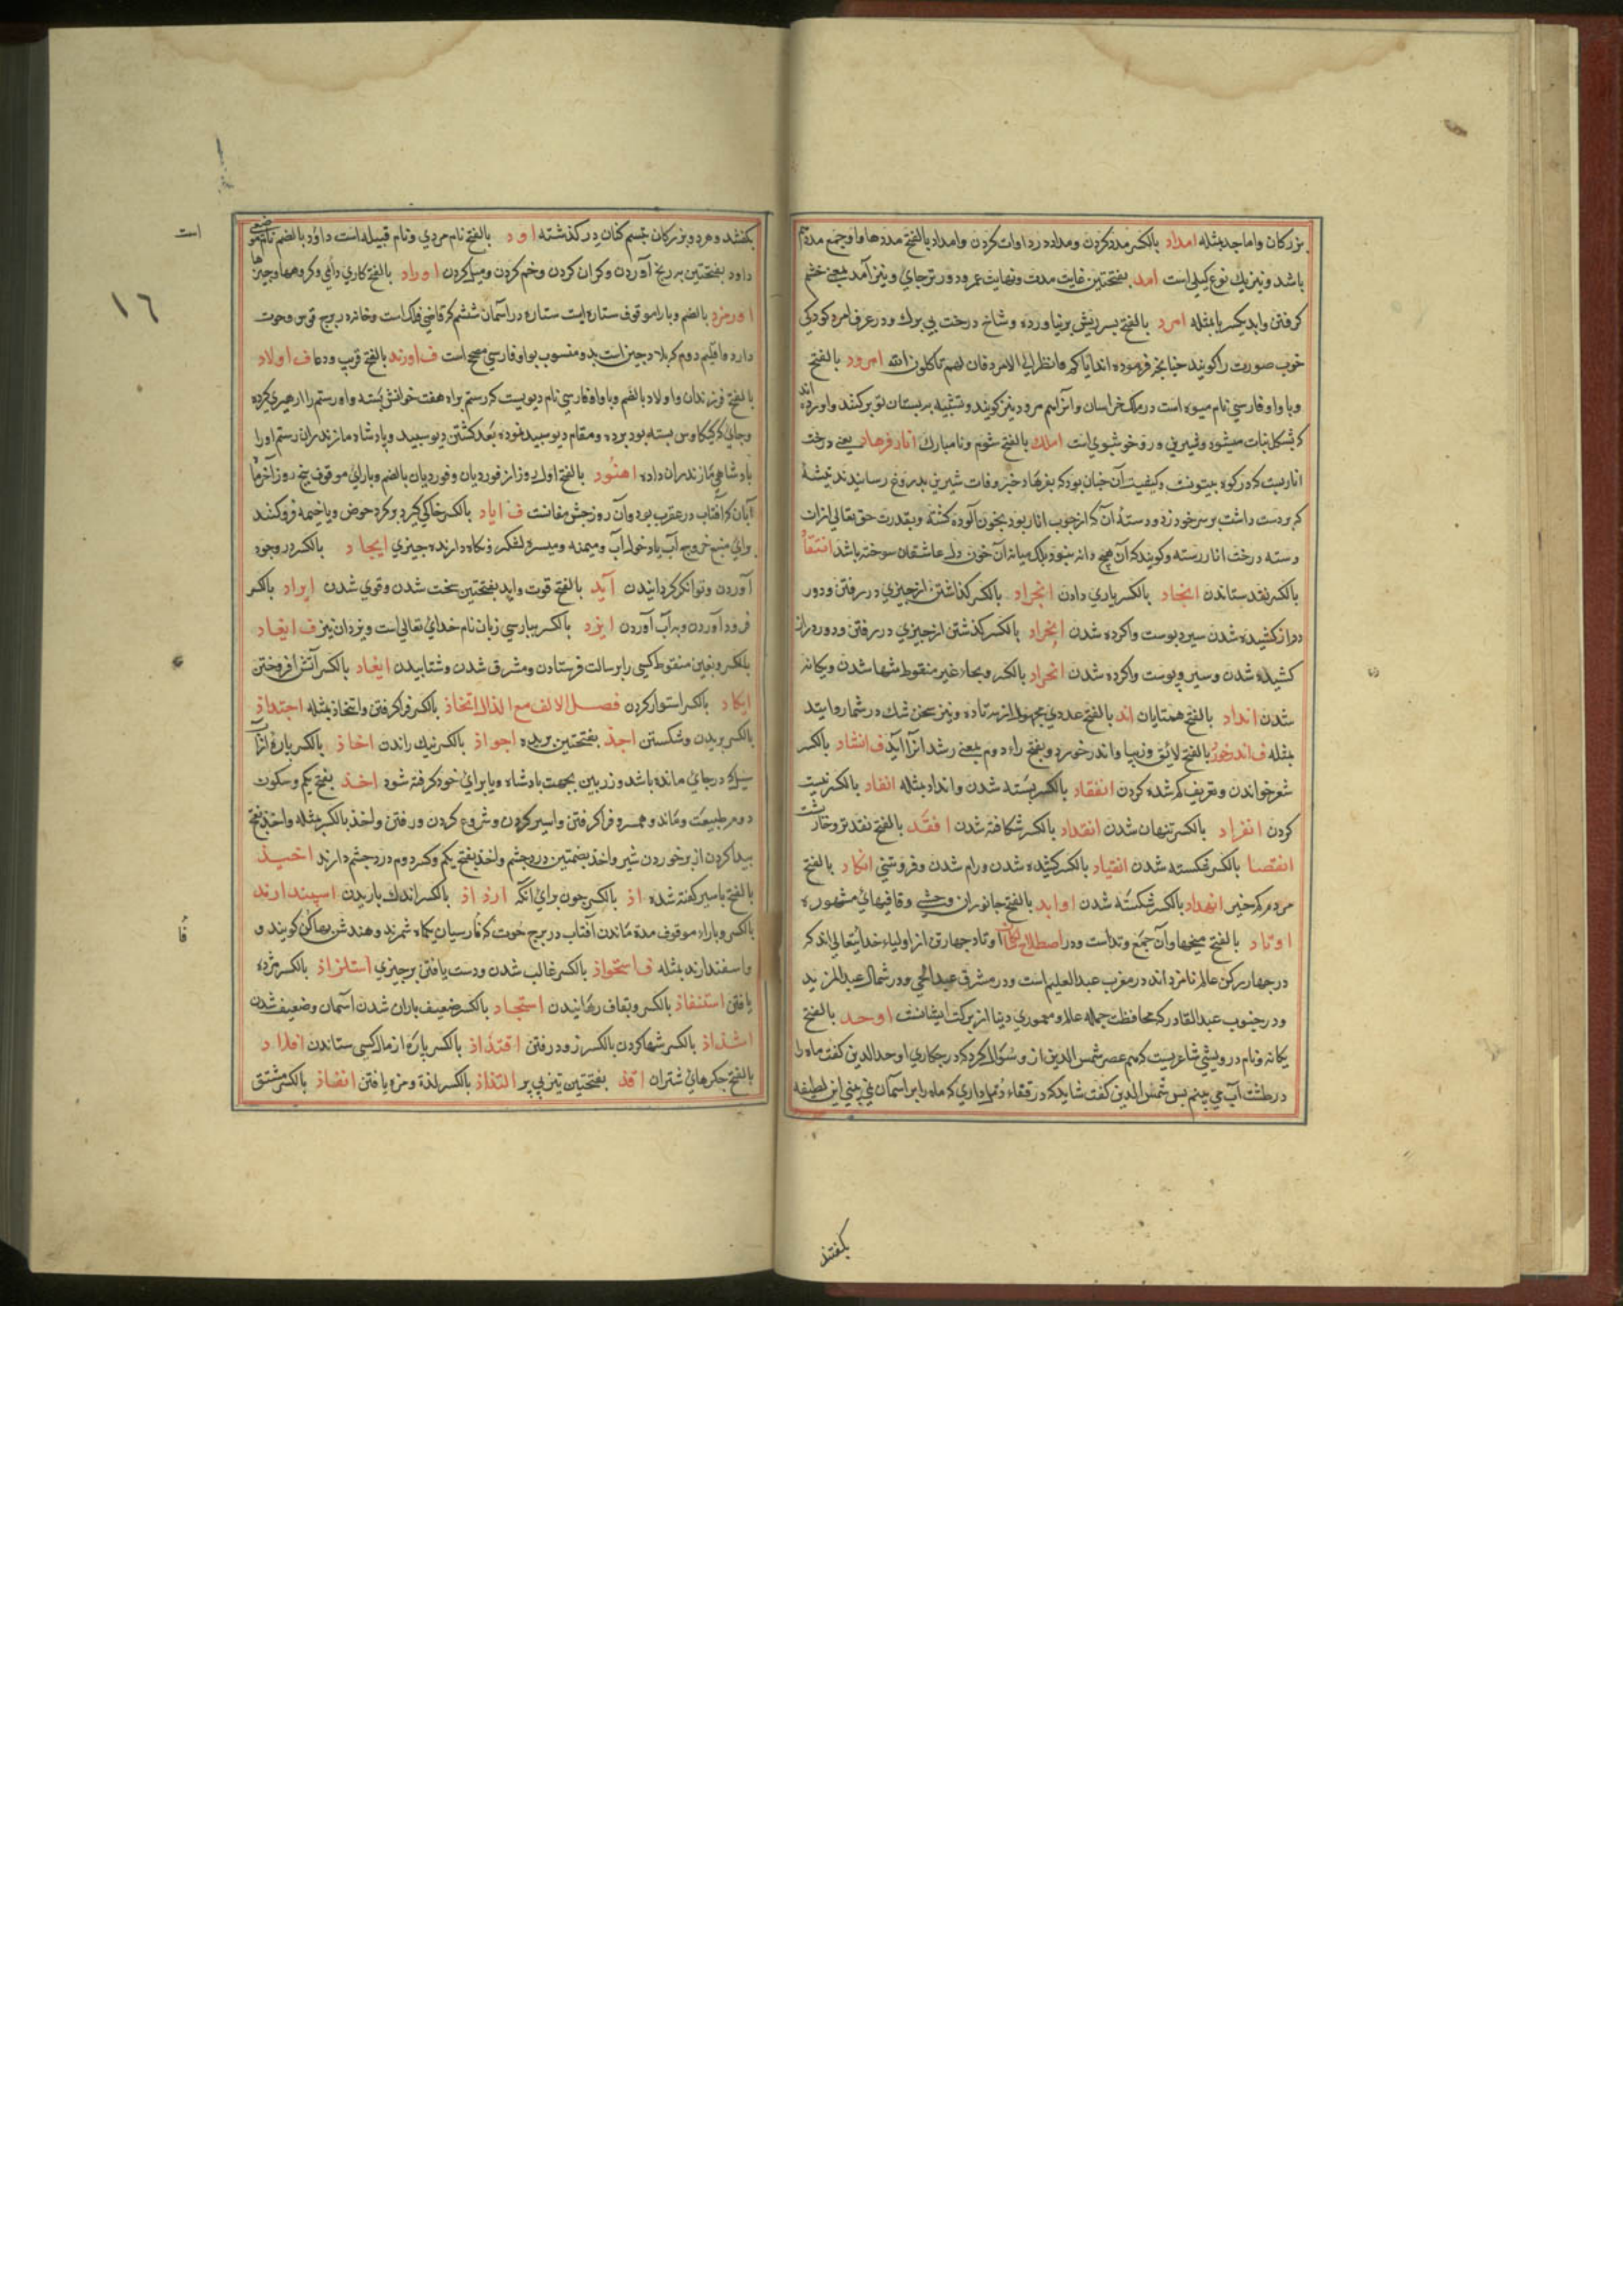 بزرکان واماجد بمثله امداد بالکسر مدد کردن ومداد در دوات کردن وامداد بالفتح مددها واو جمع مدد هم
باشد ونیز یك نوع کیلی است امد بفتحتین غایت مدت ونهایت عمر ودورتر جای ونیز آمد بمعنی خشم
کرفتن وابد بکسر یا بمثله امرد بالفتح پسر ریش بر نیاورده وشاخ درخت بی برك ودر عرف امرد کودکی
خوب صورت را کویند چنانچه فرموده اند ایاکم والنظر الی الامرد فان لهم کلون الله امرود بالفتح
وبا واو فارسی نام میوه است در ملك خراسان وانرا امرود نیز کویند وتشبیه بپستان تو بر کنند واورده اند
که بشکل نبات میشود وشیرینی ودر وخوشبوی است املد بالفتح شوم ونامبارك انار فرهاد یعنی درخت
اناریست که در کوه بیستونست وکیفیت آن چنان بود که بفرهاد خبر وفات شیرین بدروغ رسانیدند تیشهٔ
که در دست داشت بر سر خود زد ودستهٔ آن که از چوب انار بود بخون آلوده کشته وبقدرت حق تعالی ازان
دسته درخت انار رسته وکویند که آن هیچ دانه نبود بلك میانهٔ آن خون دل عاشقان سوخته باشد انتقاد
بالکسر نقد ستاندن انجاد بالکسر یاری دادن انجراد بالکسر کذاشتن از چیزی در رفتن ودور
دراز کشیده شدن سیر وپوست واکرده شدن انجراد بالکسر کذشتن از چیزی در رفتن ودور دراز
کشیده شدن وسیر وپوست واکرده شدن انحراد بالکسر وبحاء غیر منقوط تنها شدن ویکانه
شدن انداد بالفتح همتایان اند بالفتح عددی مجهول از سه تا ده ونیز سخن شك در شمار وایتد
بمثله ف اندرخور بالفتح لائق وزیبا واندر خورد وبفتح راء دوم بمعنی رشد انرا آید ف انشاد بالکسر
شعر خواندن وتعریف کم شده کردن انفقاد بالکسر بسته شدن وانداد بمثله انفاد بالکسر نیست
کردن انفراد بالکسر تنهان شدن انقداد بالکسر شکافته شدن افقد بالفتح نقد تر وخارپشت
انقصا بالکسر شکسته شدن انقیاد بالکسر کشیده شدن ورام شدن وفروتنی انکاد بالفتح
مردم کم خیر انهداد بالکسر شکسته شدن اوابد بالفتح جانوران وحشی وقافیهائی مشهوره
اوتاد بالفتح میخها وآن جمع وتد است ودر اصطلاح سالکان اوتاد چهار تن از اولیاء خدایتعالی اند که
در چهار رکن عالم نامزد اند در مغرب عبدالعلیم است ودر مشرق عبدالحی ودر شمال عبدالمزید
ودر جنوب عبدالقادر که محافظت جمله عالم ومعموری دنیا از برکت ایشانست اوحد بالفتح
یکانه ونام درویشی شاعریست که هم عصر شمس الدین از وسؤال کرد که در چکاری اوحدالدین کفت ماه را
در طشت آب می بینم پس شمس الدین کفت شاید که در قفاء دمل داری که ماه را بر آسمان نمی بینی این لطیفه
بکفتند
بکفتند وهر دو بزرکان تبسم کنان در کذشته اود بالفتح نام مردی ونام قبیله است داؤد بالضم نام موضعی
داود بفتحتین برنج آوردن وکران کردن وخم کردن ومیل کردن اوراد بالفتح کاری دائمی وکروهها وچیزها
اورمزد بالضم وبا را موقوف ستاره ایست ستاره در آسمان ششم که قاضی فلك است وخانه در برج قوس وحوت
دارد واقلیم دوم که بلاد چین است بدو منسوب بواو فارسی صحیح است ف اورند بالفتح فریب ودغا ف اولاد
بالفتح فرزندان واولاد بالضم وبا واو فارسی نام دیویست که رستم براه هفت خوانش بسته واو رستم را رهبری کرده
وجائی که کیکاوس بسته بود برده ومقام دیو سپید نموده بعد کشتن دیو سپید وپادشاه مازندران رستم اورا
پادشاهی مازندران داده اهنود بالفتح اول روز از فوردیان وفوردیان بالضم وبا رای موقوف پنج روز آخر ماه
آبان که آفتاب در عقرب بود وآن روز جشن مغانست ف ایاد بالکسر خاکی کبرد وکرد حوض ویا خیمه فروکشند
وبرای منبع خروج آب یا دخول آب ومیمنه ومیسرهٔ لشکر ونکاه دارنده چیزی ایجاد بالکسر در وجود
آوردن وتوانکر کردانیدن آید بالفتح قوت واید بفتحتین سخت شدن وقوی شدن ایراد بالکسر
فرود آوردن وبر آب آوردن ایزد بالکسر بپارسی زبان نام خدای تعالی است ویزدان نیز ف ایغاد
بالکسر وبغین منقوط کسی را برسالت فرستادن ومشرف شدن وشتابیدن ایقاد بالکسر آتش افروختن
ایکاد بالکسر استوار کردن فصل الالف مع الذال اتخاذ بالکسر فرا کرفتن واتخاذ بمثله اجتذاذ
بالکسر بریدن وشکستن اجذ بفتحتین بریده اجواذ بالکسر نیك راندن اخاذ بالکسر پارهٔ از آب
سیل که در جای مانده باشد وزمین بجهت پادشاه ویا برای خود کرفته شود اخذ بفتح یکم وسکون
دوم طبیعت ومانند وهمسره فرا کرفتن واسیر کردن وشروع کردن ورفتن واخذ بالکسر بمثله واخذ بفتح
پیدا کردن از بر خوردن شیر واخذ بضمتین درد چشم واخذ بفتح یکم وکسر دوم درد چشم دارند اخیذ
بالفتح باسیر کفته شده اذ بالکسر چون برای آنکه ارذاذ بالکسر اندك باریدن اسپندارند
بالکسر وبا راء موقوف مدة ماندن آفتاب در برج حوت که فارسیان یکماه شمرند وهندش پهاکن کویند و
واسفندارند بمثله ف استحواذ بالکسر غالب شدن ودست یافتن بر چیزی استلزاذ بالکسر مزه
یافتن استنفاذ بالکسر وبقاف رهانیدن استجاد بالکسر ضعیف باران شدن آسمان وضعیف شدن
اشذاذ بالکسر تنها کردن بالکسر زود رفتن اقتذاذ بالکسر پارهٔ از مال کسی ستاندن افلاد
بالفتح جکرهای شتران اقذ بفتحتین تیز بی پر التذاذ بالکسر لذة ومزه یافتن انفاذ بالکسر مشتق
است
١٦
فا